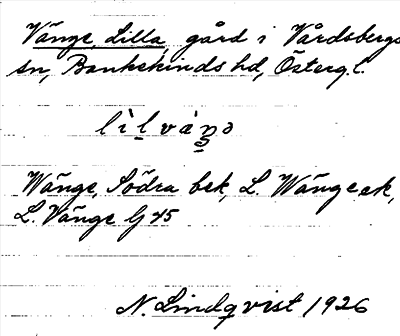 Vänge, Lilla, gård i Vårdsbergs
sn, Bankekinds hd, Östergl.
lìlváŋə
Wänge, Södra bek, L. Wänge ek,
L. Vänge G 45
N. Lindqvist 1926